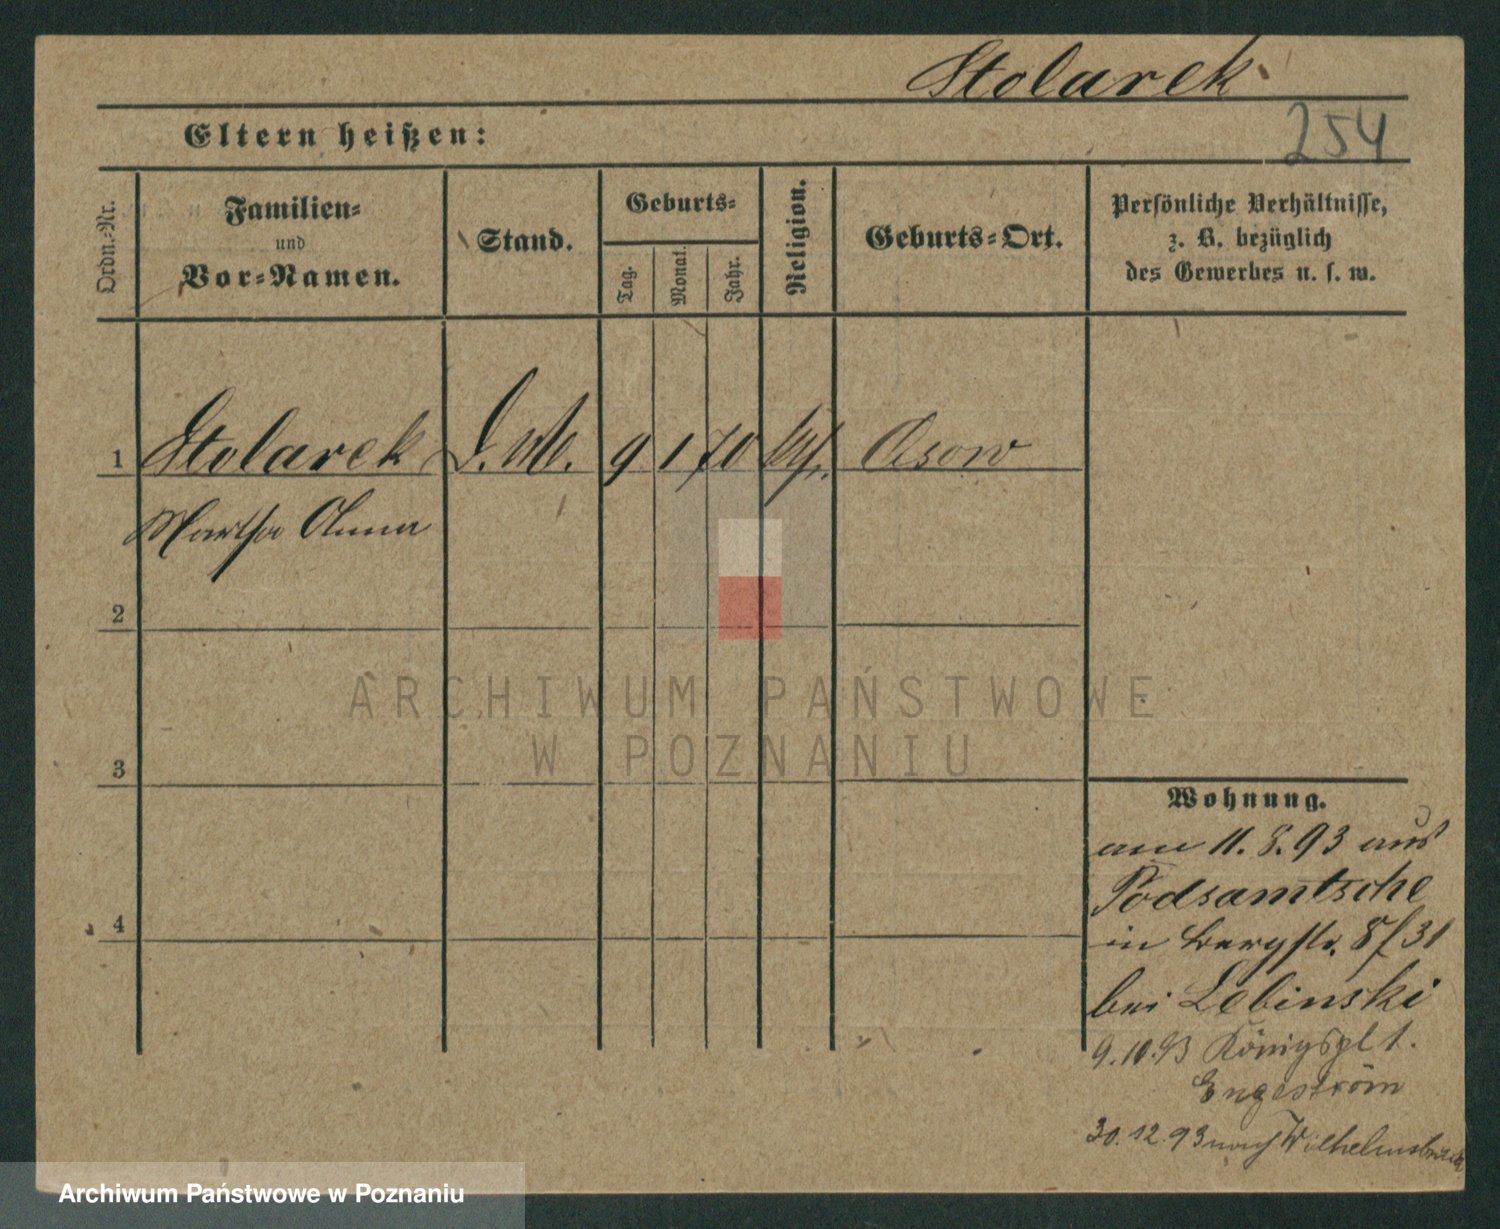 Stolarek
254
Eltern heißen:
Ordn.-Nr.
Familien-
und
Vor-Namen.
Stand.
Geburts-
Tag.
Monat.
Jahr.
Religion.
Geburts-Ort.
Persönliche Verhältnisse,
z. B. bezüglich
des Gewerbes u. s. w.
1 Stolarek 9 1 70 kth.
Martha Anna
2
3
4
ARCHIWUM PAŃSTWOWE
W POZNANIU
Wohnung.
am 11.8.93 aus
Podsamtsche
in Bergstr. 8/31
bei Lebinski
9.10.93 Königspl 1.
Engeström
30.12.93 nach Wilhelmsbrück
Archiwum Państwowe w Poznaniu